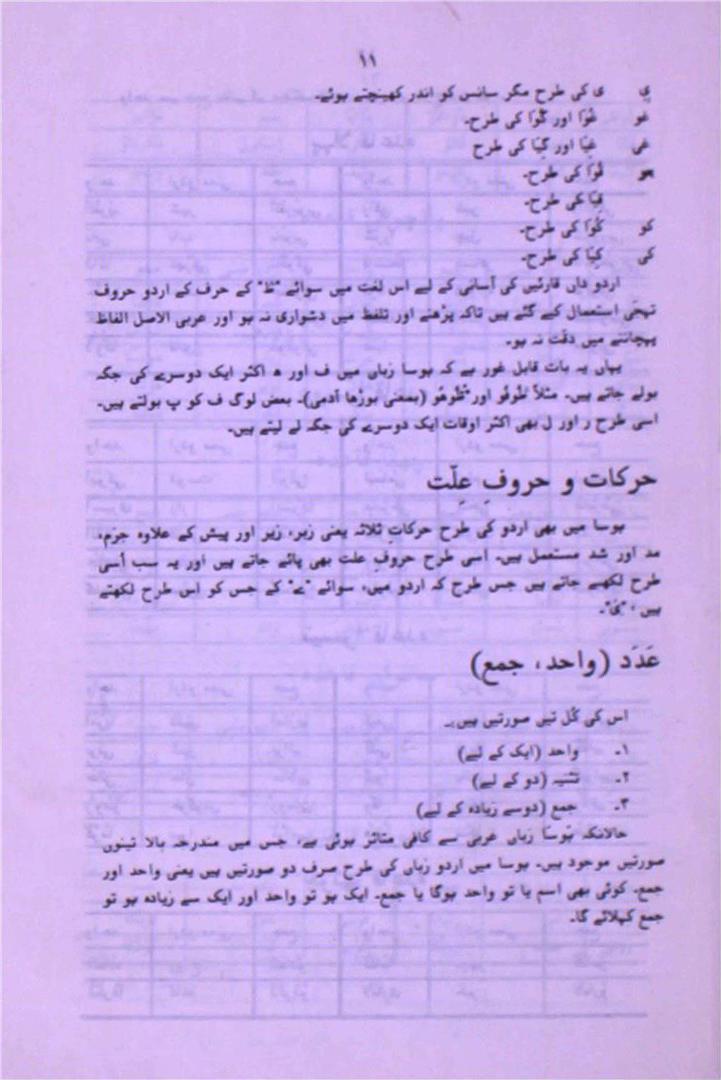 ۱۱
ی ی کی طرح مگر سانس کو اندر کھینچتے ہوئے۔
غو غُوَا اور گُوَا کی طرح۔
غی غِیَا اور گِیَا کی طرح
قو قُوَا کی طرح۔
قِیَا کی طرح۔
کو کُوَا کی طرح۔
کی کِیَا کی طرح۔
اردو داں قارئین کی آسانی کے لیے اس لغت میں سوائے "ظ" کے حرف کے اردو حروف
تہجّی استعمال کیے گئے ہیں تاکہ پڑھنے اور تلفظ میں دشواری نہ ہو اور عربی الاصل الفاظ
پہچاننے میں دقّت نہ ہو۔
یہاں یہ بات قابل غور ہے کہ ہوسا زبان میں ف اور ھ اکثر ایک دوسرے کی جگہ
بولے جاتے ہیں۔ مثلاً طُوفُو اور "طُوھُو (بمعنی بوڑھا آدمی)۔ بعض لوگ ف کو پ بولتے ہیں۔
اسی طرح ر اور ل بھی اکثر اوقات ایک دوسرے کی جگہ لے لیتے ہیں۔
حرکات و حروفِ عِلّت
ہوسا میں بھی اردو کی طرح حرکاتِ ثلاثہ یعنی زبر، زیر اور پیش کے علاوہ جزم،
مد اور شد مستعمل ہیں۔ اسی طرح حروفِ علت بھی پائے جاتے ہیں اور یہ سب اُسی
طرح لکھے جاتے ہیں جس طرح کہ اردو میں، سوائے "ے" کے جس کو اس طرح لکھتے
ہیں،
عَدَد (واحد، جمع)
اس کی کُل تین صورتیں ہیں۔
۱۔ واحد (ایک کے لیے)
۲۔ تثنیہ (دو کے لیے)
۳۔ جمع (دوسے زیادہ کے لیے)
حالانکہ ہَوسا زبان عربی سے کافی متاثر ہوئی ہے، جس میں مندرجہ بالا تینوں
صورتیں موجود ہیں۔ ہوسا میں اردو زبان کی طرح صرف دو صورتیں ہیں یعنی واحد اور
جمع۔ کوئی بھی اسم یا تو واحد ہوگا یا جمع۔ ایک ہو تو واحد اور ایک سے زیادہ ہو تو
جمع کہلائے گا۔